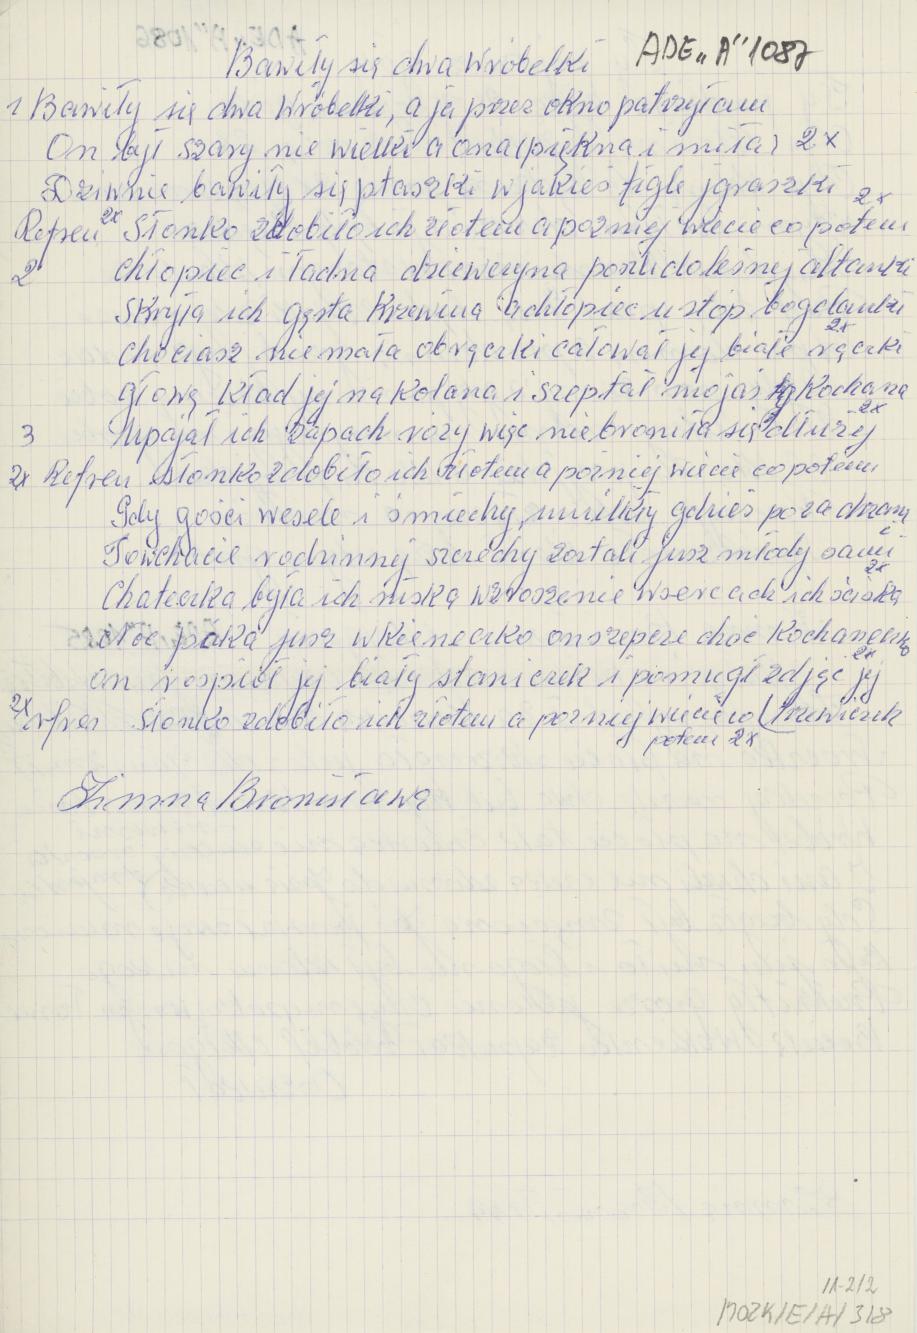 Bawiły się dwa Wróbelki ADE „A" 1087
1 Bawiły się dwa Wróbelki, a ja przez okno patrzyłam
On był szary nie wielki a ona piękna i miła 2x
Dziwnie bawiły się ptaszki w jakieś figle igraszki 2x
Refren 2x Słonko zdobiło ich złotem a pozniej wiecie co potem
2 chłopiec i ładna dziewczyna poszli do leśnej altanki
Skryła ich gęsta Krzewina a chłopiec u stóp bogdanki
chociasz nie mała obrączki całował jej białe rączki 2x
głowę kład jej na kolana i szeptał mojaś ty Kochana
3 Upajał ich zapach rozy więc nie broniła się dłużej 2x
2x Refren słonko zdobiło ich złotem a pożniej wiecie co potem
Gdy gości wesele i śmiechy, umilkły gdzieś poza drzwiami
To w chacie rodzinnej szczechy zostali jusz młody sami
Chateczka była ich niska wzroszenie w sercach ich ściska 2x
jusz w okieneczko on szepcze choć Kochaneczko
on rospioł jej biały staniczek i pomugł zdjąć jej 2x
2x refren słonko zdobiło ich złotem a pozniej wiecie co (trzewiczek
potem 2x
Zimna Bronisława
11-2/2
MOZK/E/A/318